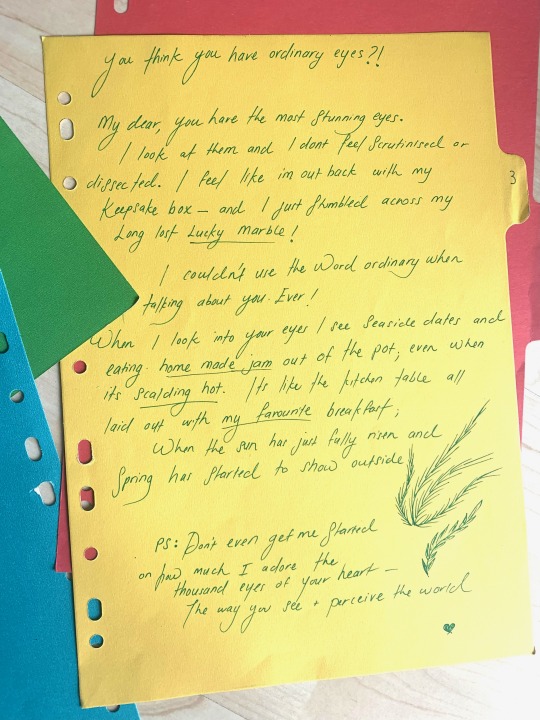 you think you have ordinary eyes?!
My dear, you have the most stunning eyes.
I look at them and I dont feel scrutinised or
dissected. I feel like im out back with my
Keepsake box — and I just stumbled across my
Long lost Lucky Marble!
3
I couldn't use the Word ordinary when
talking about you. Ever!
When I look into your eyes I see seaside dates and
eating home made jam out of the pot; even when
its scalding hot. Its like the kitchen table all
laid out with my favourite breakfast;
When the sun has just fully risen and
Spring has started to show outside
PS: Don't even get me started
on how much I adore the
thousand eyes of your heart —
The way you see + perceive the world